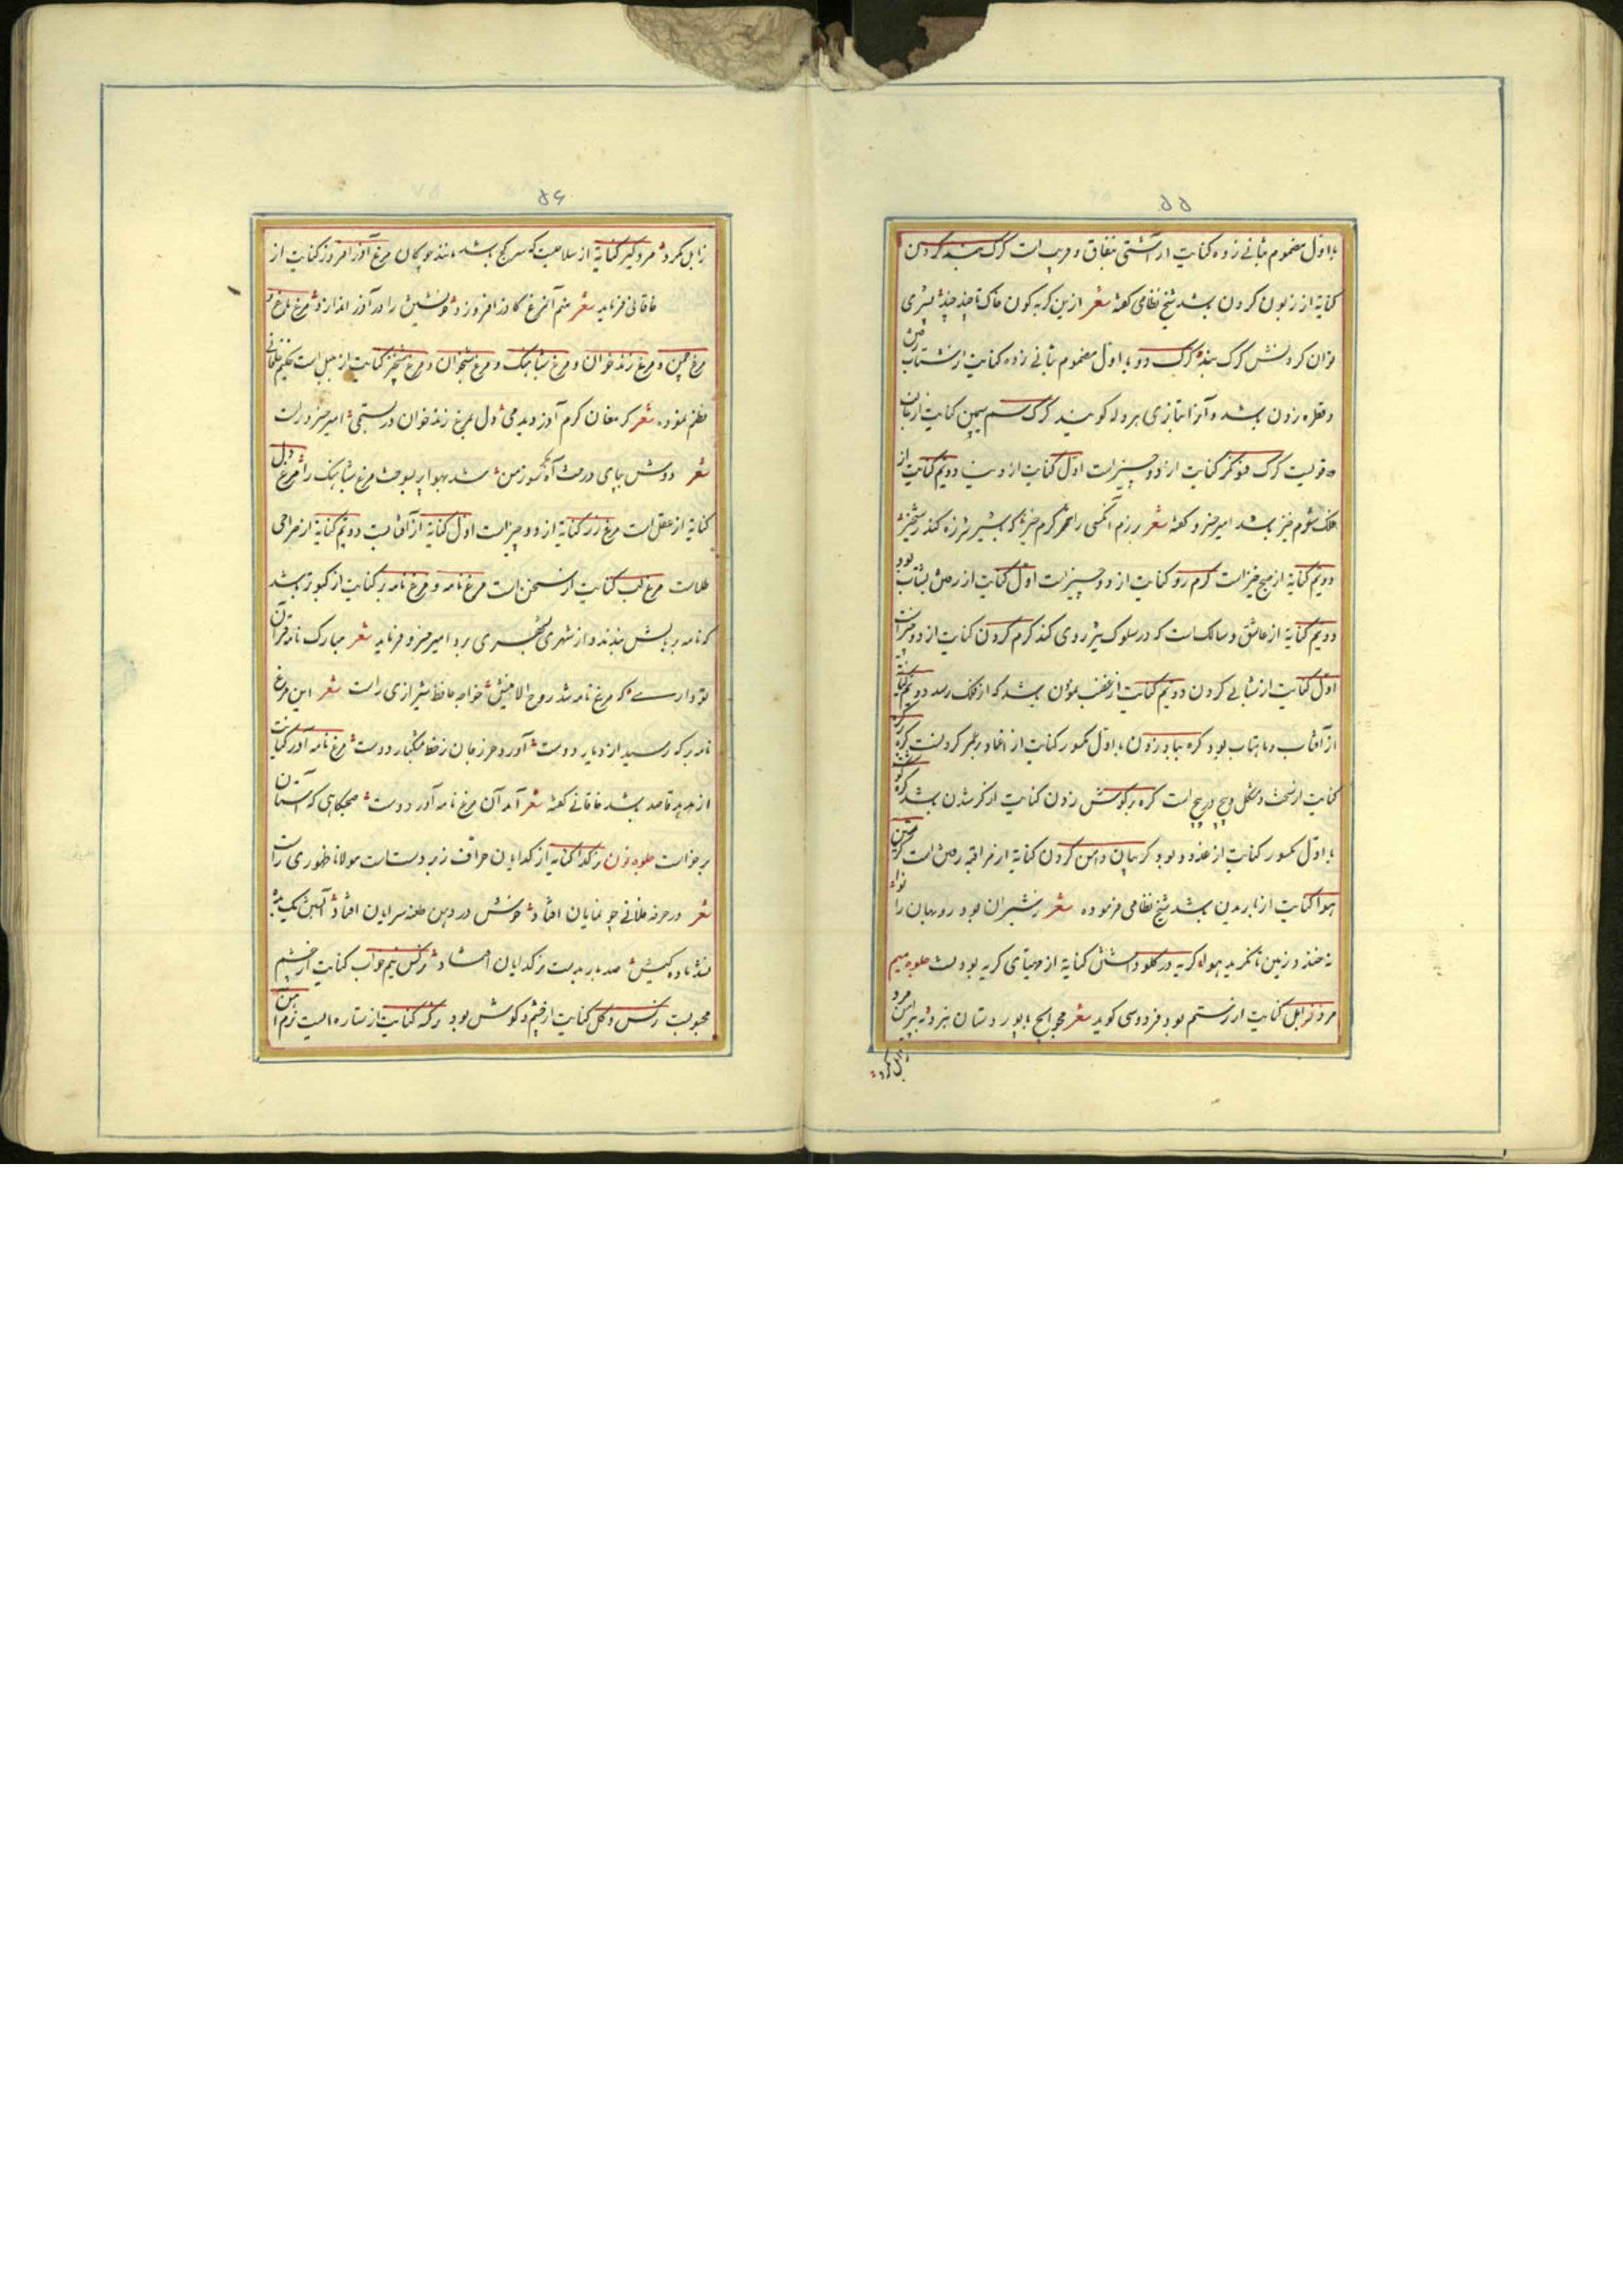 ۵۵
باول مضموم بثانی زده کنایت از آشتی بنفاق و فریب است گرگ بند کردن
کنایة از زبون کردن باشد شیخ نظامی گفته شعر ازین گربه گون خاک تا چند چند بشیری
توان کردنش گرگ بند گرگ دو باول مضموم بثانی زده کنایت از شتاب رفتن
و قطره زدن باشد و آنرا بتازی هروله گویند گرگ سیمین کنایت از
قولیست گرگ فسونگر کنایت از دو چیز است اول کنایت از دنیا دویم کنایت از
فلک شوم خیز باشد امیر خسرو گفته شعر برزم آنکسی را گرم خیز که بشیر شرزه کند رستخیز
دویم کنایة از صبح خیز است گرم رو کنایت از دو چیز است اول کنایت از رفتن بشتاب بود
دویم کنایة از عاشق و سالک است که در سلوک تیز روی کند گرم کردن کنایت از دو چیز است
اول کنایت از شتابی کردن دویم کنایت از غضب نمودن باشد که از فلک رسد دویم کنایت
از آفتاب و ماهتاب بود گره بباد زدن باول مکسور کنایت از اعتماد بر عمر کردنست گره بر گره
کنایت از سخت و مشکل و پیچ در پیچ است گره بر گوش زدن کنایت از کر شدن باشد گره
باول مکسور کنایت از غدود بود گریبان دامن کردن کنایة از مراقبه رفتن است گریختن
هوا کنایت از باریدن باشد شیخ نظامی فرموده شعر شیران بود روبهان را نوا
نخندد زمین تا نگرید هوا گریه در گلو داشتن کنایة از مهیای گریه بودنست جلوه میم
مرد زابل کنایت از رستم بود فردوسی گوید شعر پور دستان نبرد مرد
زابل کرد
۵۶
زابل مکرد مرد گیر کنایة از سلاحیست که سر کج باشد مانند چوگان مرغ آذر افروز کنایت از
خاقانی فرماید شعر منم آن مرغ کآذر افروزد خویشتن را در آذر اندازد مرغ باغ و
مرغ چمن و مرغ زند خوان و مرغ شباهنگ و مرغ شبخوان و مرغ شبخیز کنایت از بلبل است حکیم خاقانی
نظم نموده شعر گر مغان کرم آوز دیدمی دل مرغ زند خوان درستمی امیر خسرو راست
شعر دوش بپای درخت آه کسوز من شد بهوا بر بسوخت مرغ شباهنگ را مرغ دل
کنایة از عقل است مرغ زر کنایة از دو چیز است اول کنایة از آفتابست دویم کنایة از صراحی
طلاست مرغ لب کنایت از سخن است مرغ نامه و مرغ نامه بر کنایت از کبوتر باشد
که نامه بر بالش بندند و از شهری بشهری برد امیر خسرو فرماید شعر مبارک نامهٔ قرآن
تو داری که مرغ نامه شد روح الامینش خواجه حافظ شیرازی راست شعر این مرغ
نامه بر که رسید از دیار دوست آورد حرز جان ز خط مشکبار دوست مرغ نامه آور کنایت
از هدهد قاصد باشد خاقانی گفته شعر آمد آن مرغ نامه آور دوست صبحگاهی که آستان
برخواست جلوه نون نر گدا کنایه از گدایان حراف زبردست است مولانا ظهوری راست
شعر در حرفه خلافی چو نمایان افتاد خونش در دهن طعنه سرایان افتاد
صد بار بدست نر گدایان افتاد نرگس نیم خواب کنایت از چشم
محبوبست نرگس و گل کنایت از چشم و گوش بود نرگه کنایت از ستاره است نرم آهن